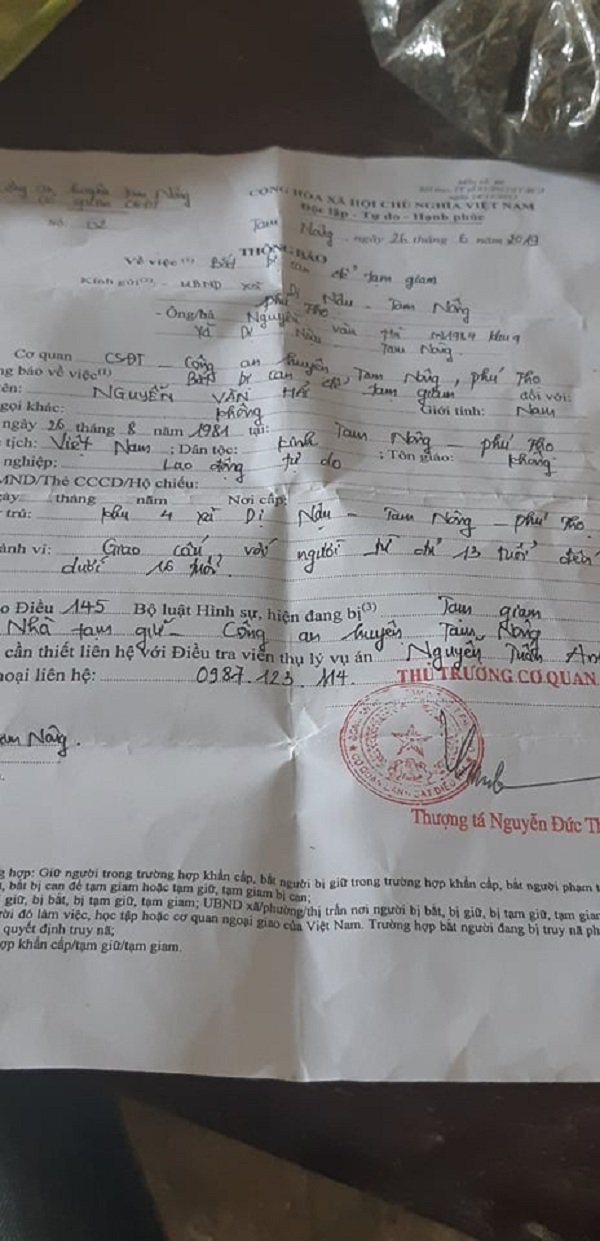 Công an huyện Tam Nông
CỘNG HÒA XÃ HỘI CHỦ NGHĨA VIỆT NAM
Cơ quan CSĐT
Độc lập - Tự do - Hạnh phúc
Số: 132
Tam Nông, ngày 26 tháng 6 năm 2019
THÔNG BÁO
Về việc(1) Bắt bị can để tạm giam
Kính gửi(2): - UBND xã Dị Nậu - Tam Nông
phú Thọ
- Ông/bà Nguyễn Văn khu 4
xã Dị Nậu Tam Nông.
Cơ quan CSĐT - Công an huyện Tam Nông, phú Thọ
ng báo về việc(1) Bắt bị can để tạm giam đối với:
ên: NGUYỄN VĂN Giới tính: Nam
gọi khác: không
ngày 26 tháng 8 năm 1981 tại: Tam Nông - phú Thọ
tịch: Việt Nam; Dân tộc: kinh; Tôn giáo: không
nghiệp: Lao động tự do
MND/Thẻ CCCD/Hộ chiếu:
gày tháng năm Nơi cấp:
trú: khu 4 xã Dị Nậu - Tam Nông - phú Thọ
ành vi: Giao cấu với người từ đủ 13 tuổi đến
dưới 16 tuổi.
o Điều 145 Bộ luật Hình sự, hiện đang bị(3) Tạm giam
Nhà tạm giữ - Công an huyện Tam Nông
cần thiết liên hệ với Điều tra viên thụ lý vụ án Nguyễn Tuấn An
hoại liên hệ: 0987.123.114.
THỦ TRƯỞNG CƠ QUAN
am Nông.
Thượng tá Nguyễn Đức Th
g hợp: Giữ người trong trường hợp khẩn cấp, bắt người bị giữ trong trường hợp khẩn cấp, bắt người phạm t
, bắt bị can để tạm giam hoặc tạm giữ, tạm giam bị can;
giữ, bị bắt, bị tạm giữ, tạm giam; UBND xã/phường/thị trấn nơi người bị bắt, bị giữ, bị tạm giữ, tạm gia
ười đó làm việc, học tập hoặc cơ quan ngoại giao của Việt Nam. Trường hợp bắt người đang bị truy nã ph
quyết định truy nã;
ợp khẩn cấp/tạm giữ/tạm giam.